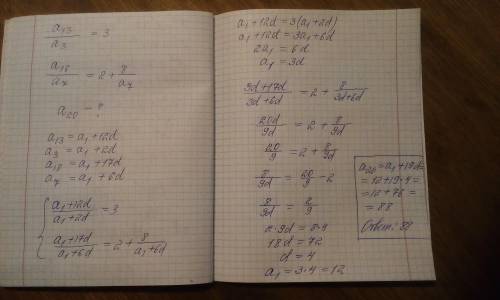 a₁₃/a₃ = 3
a₁₈/a₇ = 2 + 8/a₇
a₂₀ - ?
a₁₃ = a₁ + 12d
a₃ = a₁ + 2d
a₁₈ = a₁ + 17d
a₇ = a₁ + 6d
{ (a₁+12d)/(a₁+2d) = 3
(a₁+17d)/(a₁+6d) = 2 + 8/(a₁+6d)
a₁ + 12d = 3(a₁+2d)
a₁ + 12d = 3a₁ + 6d
2a₁ = 6d
a₁ = 3d
(3d+17d)/(3d+6d) = 2 + 8/(3d+6d)
20d/9d = 2 + 8/9d
20/9 = 2 + 8/9d
8/9d = 20/9 - 2
8/9d = 2/9
2·9d = 8·9
18d = 72
d = 4
a₁ = 3·4 = 12
a₂₀ = a₁ + 19d =
= 12 + 19·4 =
= 12 + 76 =
= 88
Ответ: 88